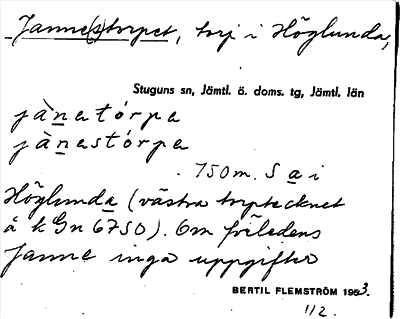 Janne(s)torpet, torp i Höglunda,
Stuguns sn, Jämtl. ö. doms. tg, Jämtl. län
jànatórpa
jànastórpa
750 m. S a i
Höglunda (västra torptecknet
å k Gn 6750). Om förledens
Janne inga uppgifter
BERTIL FLEMSTRÖM 1953.
1/2.